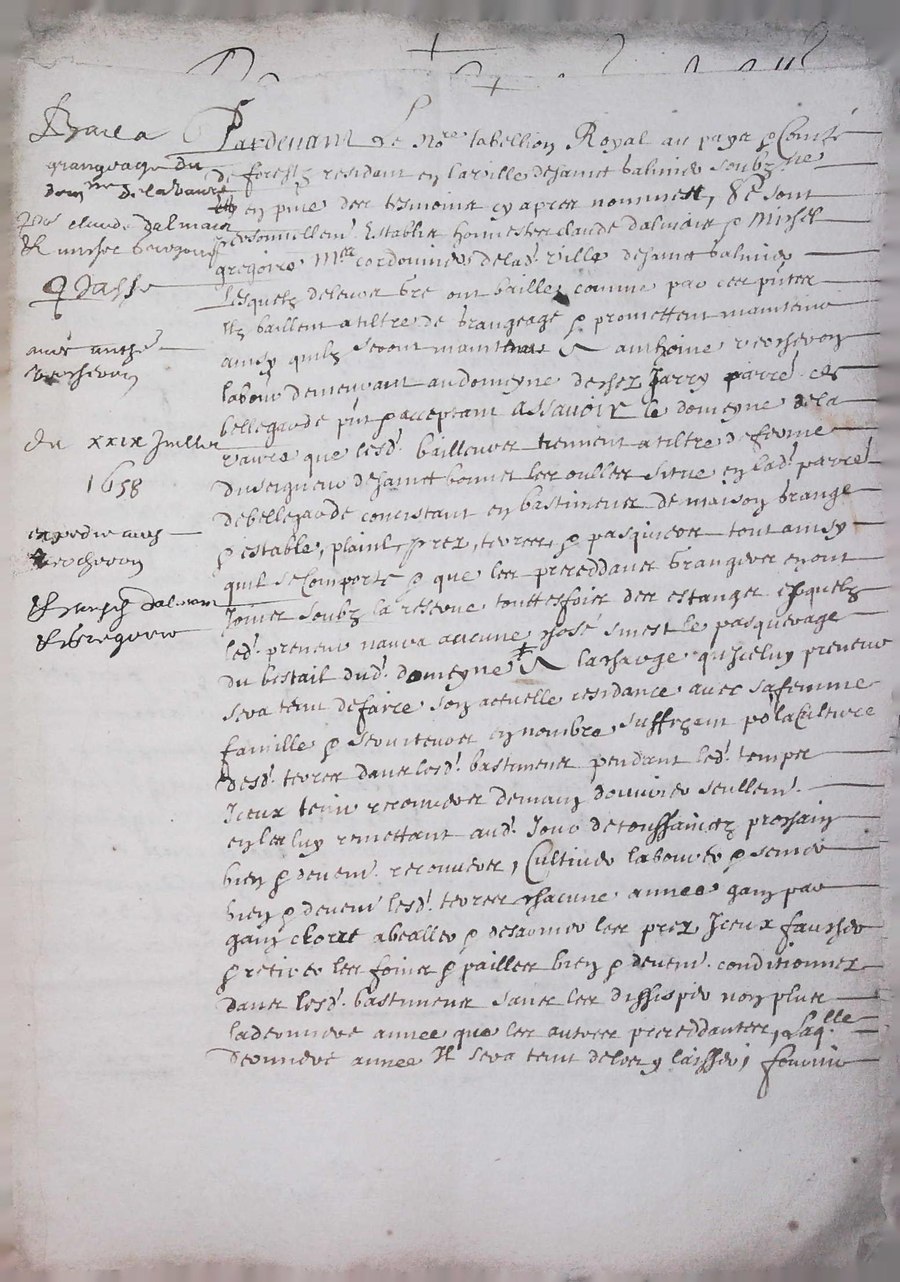 Bail a
grangeage du
dom.ne de la Vavre
pour claude dalmais
& michel gregoire
à
anthe
vercheron
du xxix Juillet
1658
expedie aud
vercheron
& ausd dalmais
& gregoire
Pardevant Le No.re tabellion Royal au pays & Comté
de forestz residant en la ville de sainct Galmier soubz.ne
en pnce des tesmoins cy apres nommes, Se sont
personnellem. Establis honnestes claude dalmais & Michel
gregoire M.es cordonniers de lad. ville de sainct Galmier
Lesquelz de leur gré ont baillé comme par ces pntes
Ilz baillent a tiltre de grangeage & promettent maintenir
ainsy quilz seront maintenus A anthoine vercheron
labour demeurant au domeyne de chez Jarry parre. de
bellegarde pnt & acceptant ASSavoir le domeyne de la
vavre que lesd. bailleurs tiennent a tiltre de ferme
du seigneur de sainct bonnet les oulles situé en lad. parre.
de bellegarde concistant en bastiments de maison grange
& estable, prez, terres, & pasquiers tout ainsy
quil se Comporte & que les preceddans grangiers en ont
Jouy soubz la reserve touttesfois des estangs esquelz
led. preneur naura aucune chose sinest le pasquerage
du bestail dud. domeyne A la charge quicelluy preneur
sera tenu de faire son actuelle residance avec sa femme
famille & serviteurs en nombre suffizant po. la Culture
desd. terres dans lesd. bastiments pendant led. temps
Iceux tenir recouverts de main douvrier seullem.
en les luy remettant aud. Jour de toussainctz prochain
bien & deuem. recouverts, Cultiver labourer & semer
bien & deuem. lesd. terres chacune annee gain par
gain les prez Iceux faucher
& retirer les foins & pailles bien & deuem. conditionnez
dans lesd. bastiments sans les dissiper non plus
la derniere annee que les autres preceddantes, Laq.lle
derniere annee Il sera tenu de les y laisser, fournir